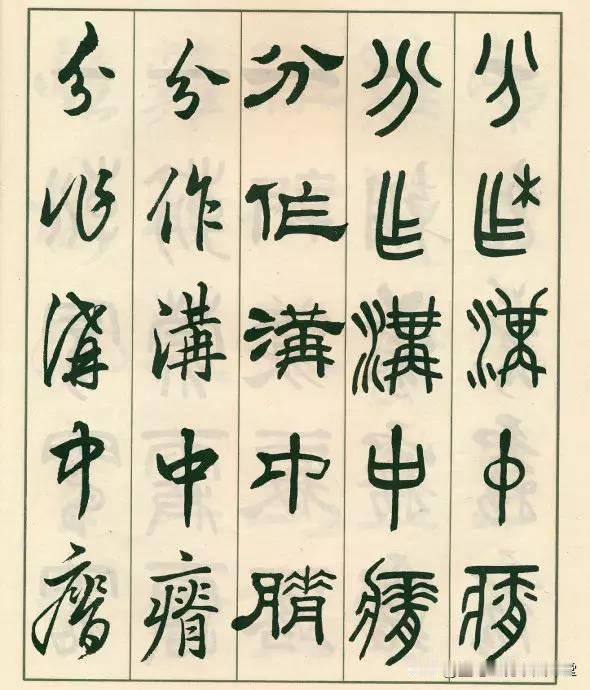 分作溝中瘠
分作溝中瘠
分作溝中瘠
分作溝中瘠
分作溝中瘠